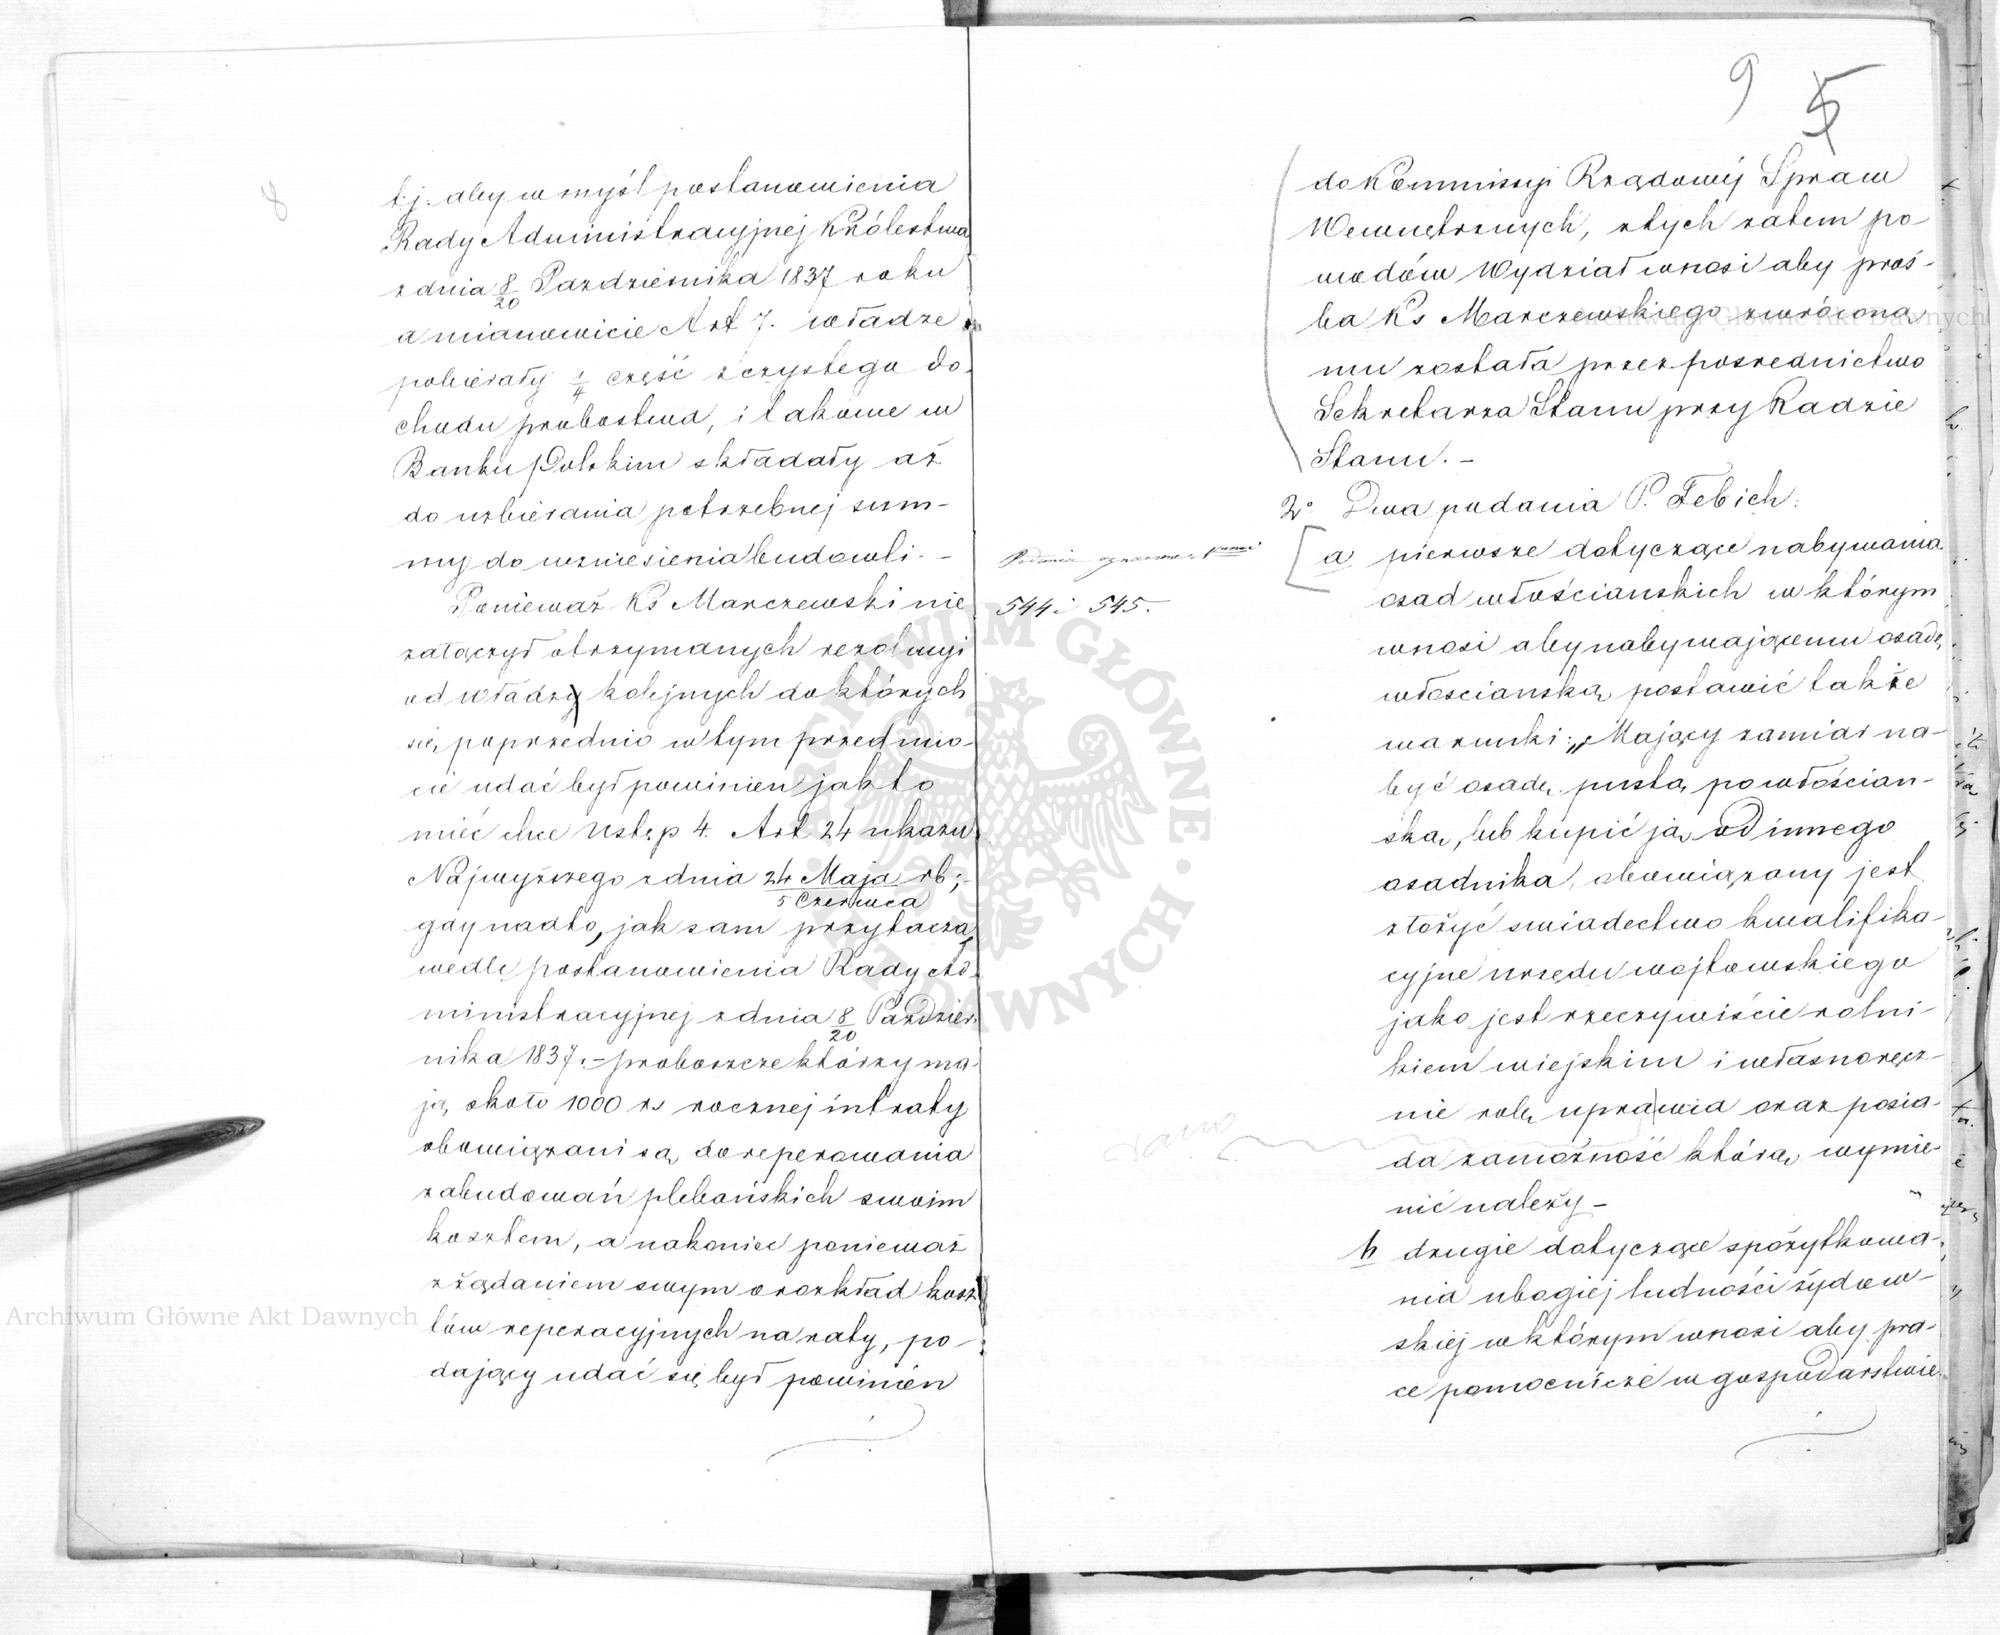 8
t.j. aby w myśl postanowienia
Rady Administracyjnej Królestwa
z dnia 8/20 Pazdziernika 1837 roku
a mianowicie Art 7. władze
pobierały 1/4 część z czystego do-
chodu probostwa, i takowe w
Banku Polskim składały aż
do uzbierania potrzebnej sum-
my do wzniesienia budowli. -
Ponieważ Ks Marczewski nie
załączył otrzymanych rezolucyi
od władzy kolejnych do których
się poprzednio w tym przedmio-
cie udać był powinien jak to
mieć chce Ustęp 4. Art 24 ukazu
Najwyższego z dnia 24 Maja rb; -
5 Czerwca
gdy nadto, jak sam przytacza
wedle postanowienia Rady Ad-
ministracyjnej z dnia 8/20 Pazdzier-
nika 1837. - proboszcze którzy ma-
ją około 1000 rs rocznej intraty
obowiązani są do reperowania
zabudowań plebańskich swoim
kosztem, a nakoniec ponieważ
z żądaniem swym o rozkład kosz-
tów reperacyjnych na raty, po-
dający udać się był powinien
9 5
do Kommissyi Rządowéj Spraw
Wewnętrznych, z tych zatem po-
wodów Wydział wnosi aby proś-
ba Ks Marczewskiego zwróconą
mu została przez pośrednictwo
Sekretarza Stanu przy Radzie
Stanu. -
2° Dwa podania P. Febich:
Podania
544 i 545.
a pierwsze dotyczące nabywania
osad włościanskich w którym
wnosi aby nabywającemu osadę
włoscianską postawić także
warunki: „Mający zamiar na-
być osadę pustą po włościan-
ską, lub kupić ją od innego
osadnika, obowiązany jest
złożyć swiadectwo kwalifika-
cyjne urzędu wojtowskiego
jako jest rzeczywiście rolni-
kiem wiejskim i własnoręcz-
nie rolę uprawia oraz posia-
da zamożność którą wymie-
nić należy -"
b drugie dotyczące spożytkowa-
nia ubogiej ludności żydow-
skiej w którym wnosi aby pra-
ce pomocnicze w gospodarstwie
Archiwum Główne Akt Dawnych
Archiwum Główne Akt Dawnych
ARCHIWUM GŁÓWNE AKT DAWNYCH